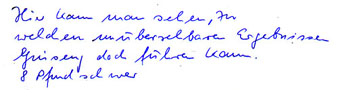 Hier kann man sehen, zu
welchen unübersehbaren Ergebnissen
Ginseng doch führen kann.
8 Pfund schwer